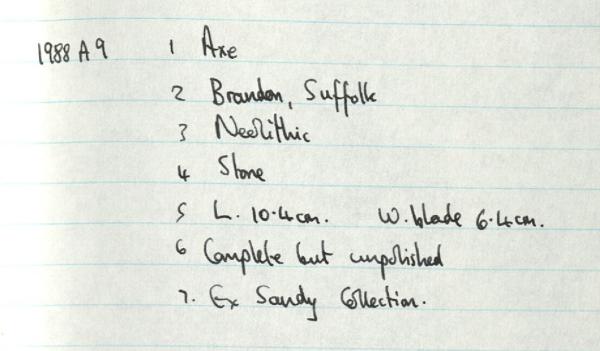 1988 A 9 1 Axe
2 Brandon, Suffolk
3 Neolithic
4 Stone
5 L. 10.4cm. W. blade 6.4cm.
6 Complete but unpolished
7. Ex Sandy Collection.